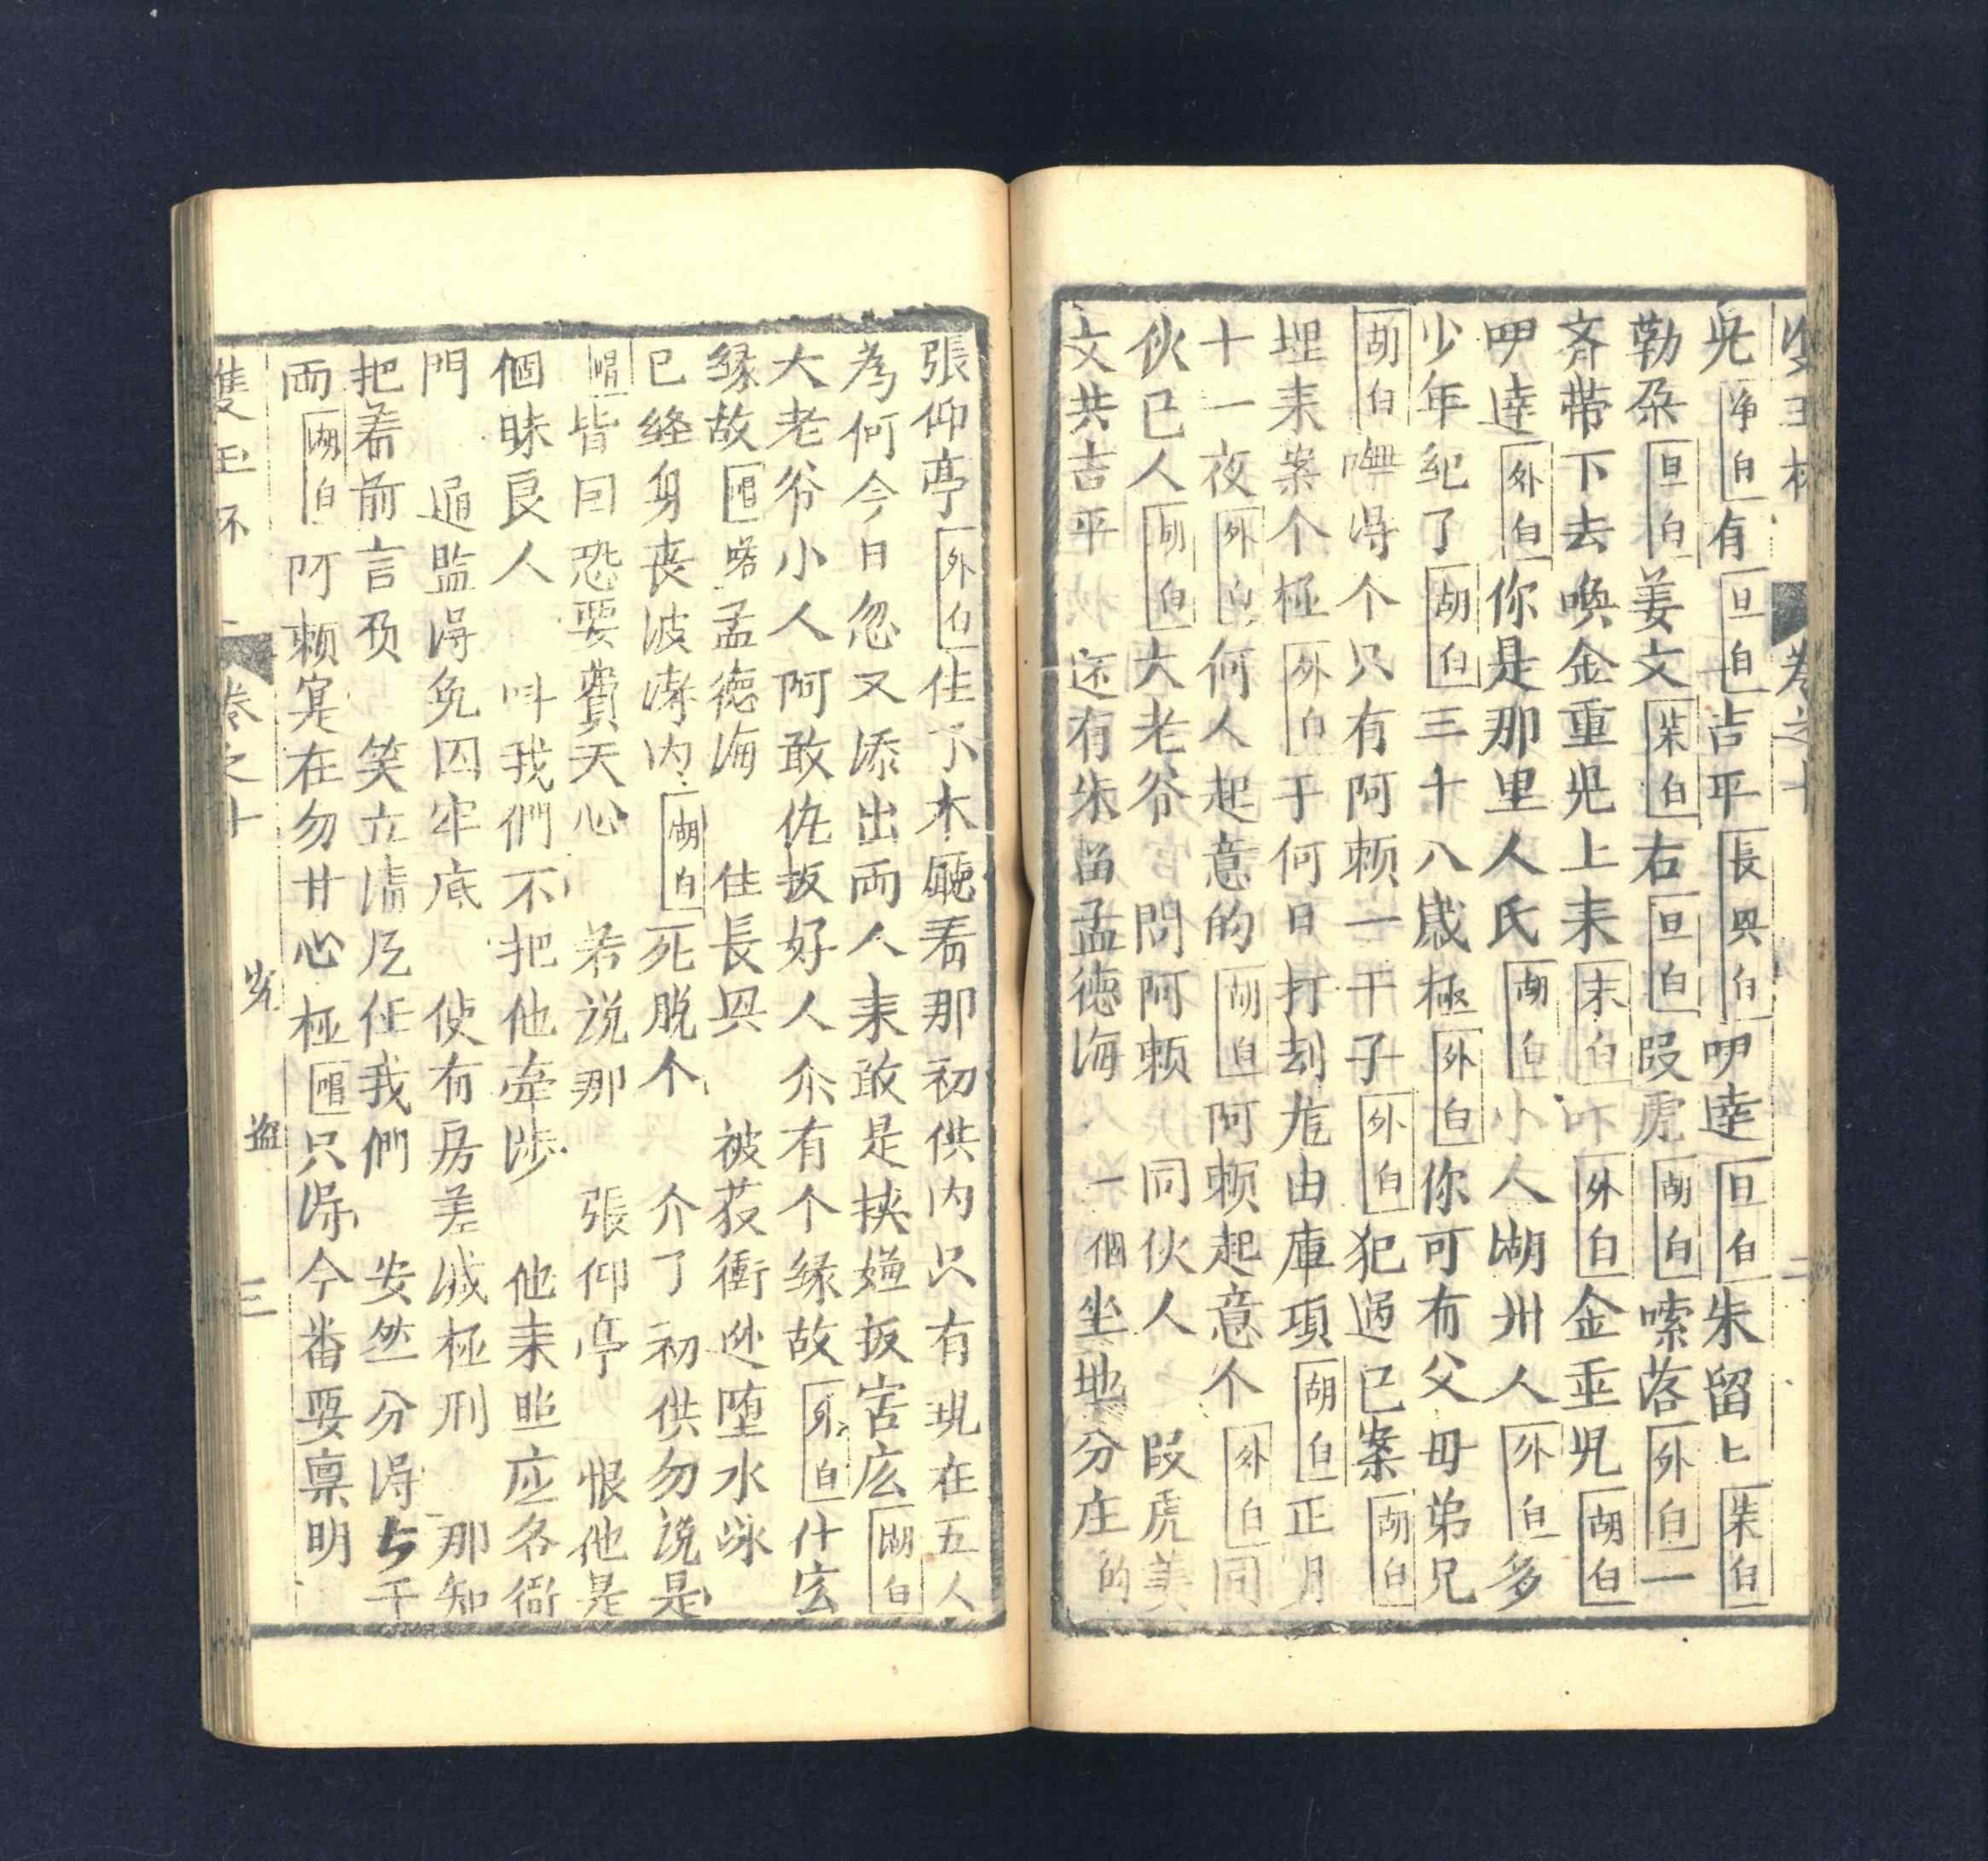 雙玉杯 卷之十 二
兒淨白有旦白吉平長興白呷達旦白朱留匕朱白
勒朶旦白姜文朱白右旦白段虎胡白嗦落外白一
齐帯下去喚金重兒上耒末白吓外白金重児胡白
呷達外白你是那里人氏胡白小人湖州人外白多
少年纪了胡白三十八歲極外白你可有父毋弟兄
胡白嘸淂个只有阿頼一干子外白犯過已案胡白
埋耒案个極外白于何日打刦庫項胡白正月
十一夜外白何人起意的胡白阿頼起意个外白同
伙已人胡白大老爷 問阿頼 同伙人 段虎美
文共吉平 还有朱留孟德海 一個坐地分庄的
張仰亭外白住了木看那初供内只有現在五人
為何今日忽又添出両人耒敢是挟嫌扳害庅胡白
大老爷小人阿敢仇扳好人尒有个緣故外白什庅
緣故唱喏孟德海 住長興 被获衝迯堕水
已经身丧波濤内胡白死脱个 介了初供勿说是
唱皆因恐要費天心 若说那張仰亭 恨他是
個昧良人 呌我們不把他牽涉 他耒照应各衙
門 通監淂免囚牢底 使有房差减極刑 那知
把着前言负 笑立清任我們 安然分淂七千
両胡白阿頼寔在勿甘心極唱只淂今番要禀明
雙玉杯 卷之十 岁盗 三